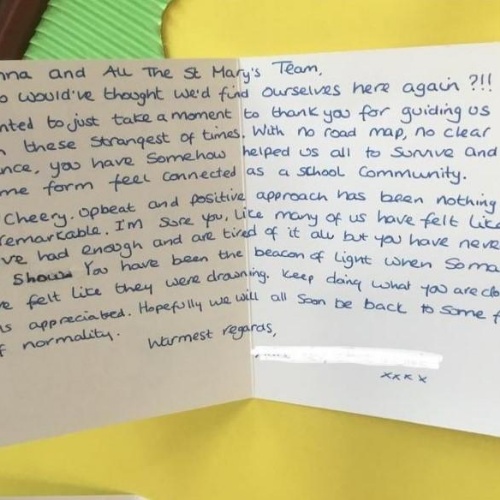 nna and All The St Mary's Team,
o would've thought we'd find ourselves here again ?!!
nted to just take a moment to thank you for guiding us
n these strangest of times. With no road map, no clear
ance, you have somehow helped us all to survive and
me form feel connected as a school community.
Cheery. Upbeat and positive approach has been nothing
remarkable. I'm sure you, like many of us have felt like
ve had enough and are tired of it all but you have neve
Show. You have been the beacon of light when so ma
ve felt like they were drowning. Keep doing what you are do
is appreciated. Hopefully we will all soon be back to some f
f normality.
Warmest regards,
xxxx